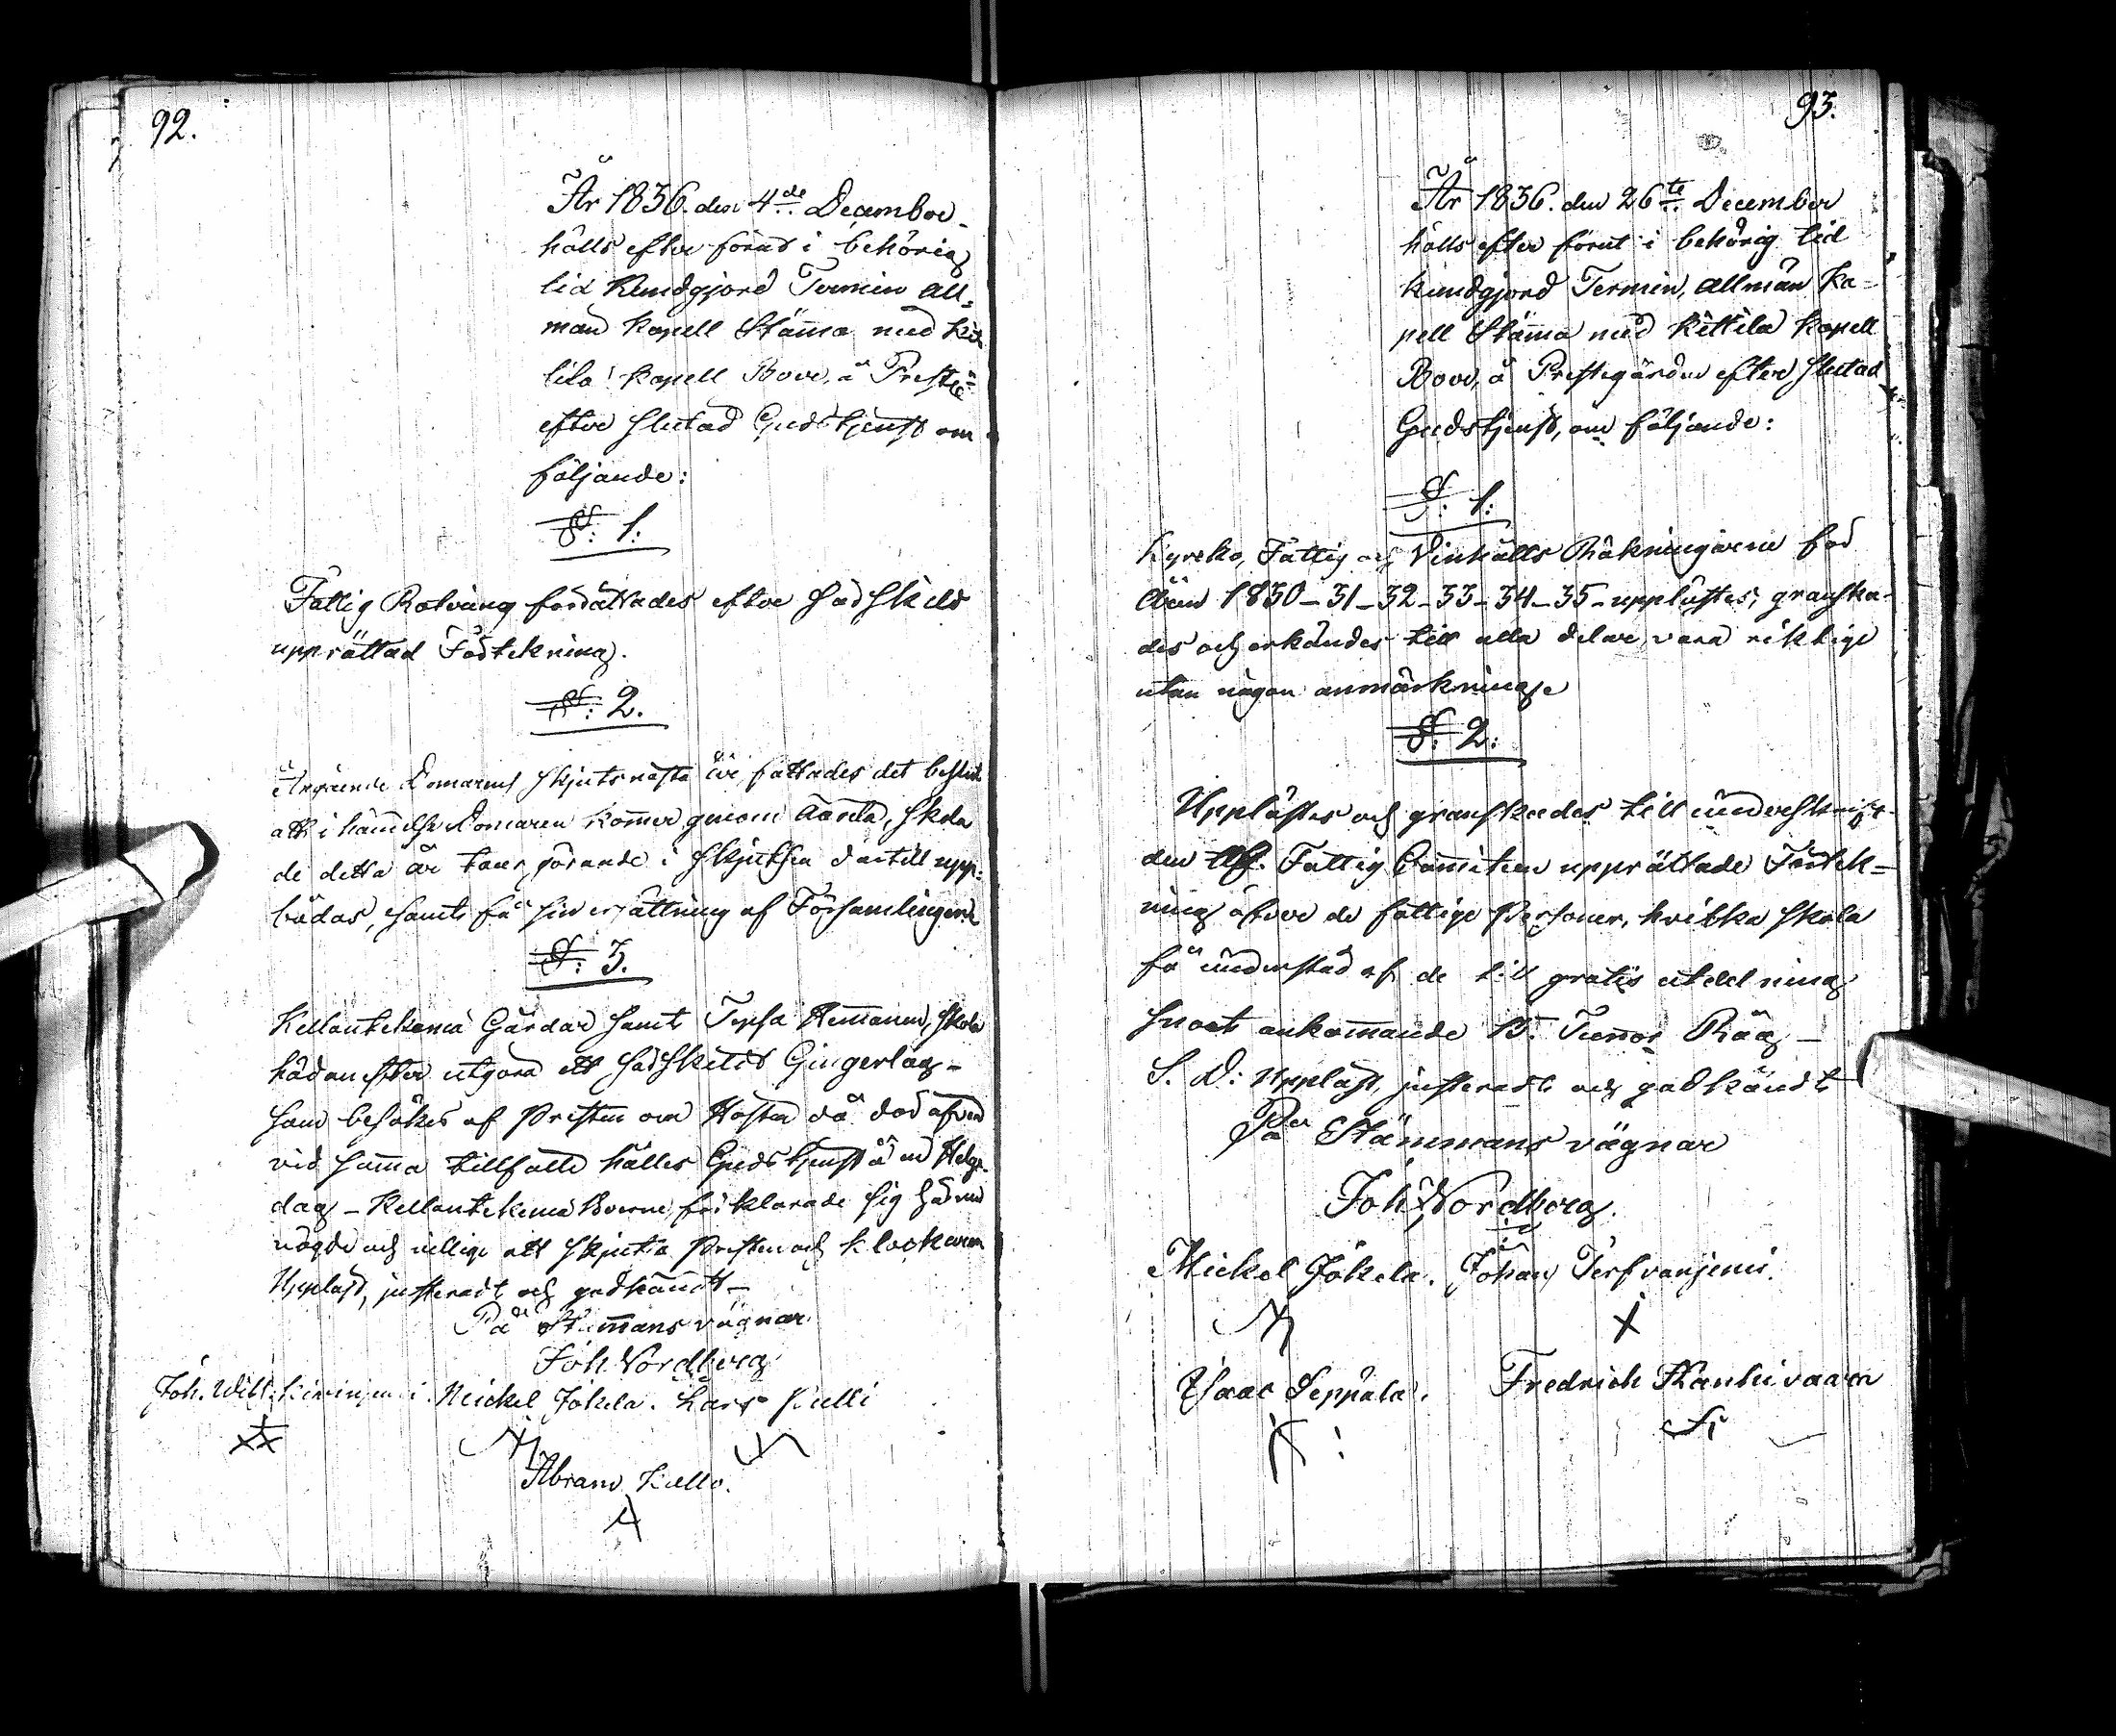 92.
År 1836. den 4de December
hölls efter förut i behörig
tid Kundgjord Termin all-
män Kapell Stämma med Kit
tila Kapell Boer, å Prestg:
efter slutad Gudstjenst om
följande:
§: 1:
Fattig Rotering författades efter särskild
upprättad Förtekning.
§: 2.
Angående Domarens skjuts nästa år fattades det beslut
att i händelse Domaren kommer genom skola
de detta år i skjutsen dertill upp-
bådas, samt få sin ersättning af Församlingen.
§: 3.
Kellontekemä Gårdar samt Tepsa Hemanen, skola
hädanefter utgöra ett särskildt Gingerlag -
som besökes af Presten om Hösten då äfven
vid samma tillfälle hålles Gudstjenst å en Helge-
dag - Kellontekemä Boerne förklarade sig härmed
nögde och villige att skjutsa Presten och klockaren
Uppläst, justeradt och godkändt -
På Stämmans vägnar
Joh. Nordberg
Joh. Will. Kiwinjemi. Mickel Jokela. Lars Pulli
Abram Kallo.
93.
År 1836. den 26te December
hölls efter förut i behörig tid
kundgjord Termin, allmän Ka-
pell Stämma med Kittila Kapell
Boer, å Prestegården efter slutad
Gudstjenst, om följande:
§: 1:
Kyrko, Fattig och Vinhålls Räkningarne för
åren 1830-31-32-33-34-35- upplästes, granska-
des och erkändes till alla delar vara riktige
utan någon anmärkning
§: 2:
Upplästes och granskades till underskrift
den af Fattig Comiteen upprättade Förtek-
ning öfver de fattige Personer, hvilka skola
få understöd af de till gratis utdelning
snart ankommande 15. Tunnor Råg -
S. D: Uppläst, justeradt och godkändt
På Stämmans vägnar
Joh. Nordberg.
Mickel Jokela. Johan Terfvanjemi.
Isaac Seppälä. Fredrich Kaukivaara